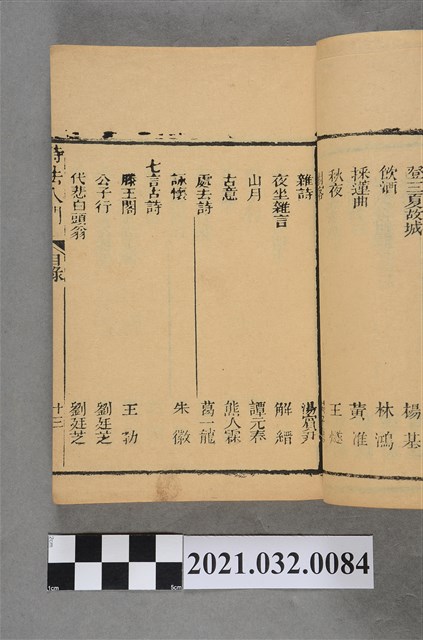 登三夏故城 楊基
飲酒 林鴻
採蓮曲 黃淮
秋夜 王燧
雜詩 湯賓尹
夜坐雜言 解縉
山月 譚元春
古意 熊人霖
處去詩 葛一龍
詠懷 朱徽
七言古詩
滕王閣 王勃
公子行 劉廷芝
代悲白頭翁 劉廷芝
詩法入門 目錄 十三
2cm
1cm
5cm
2021.032.0084